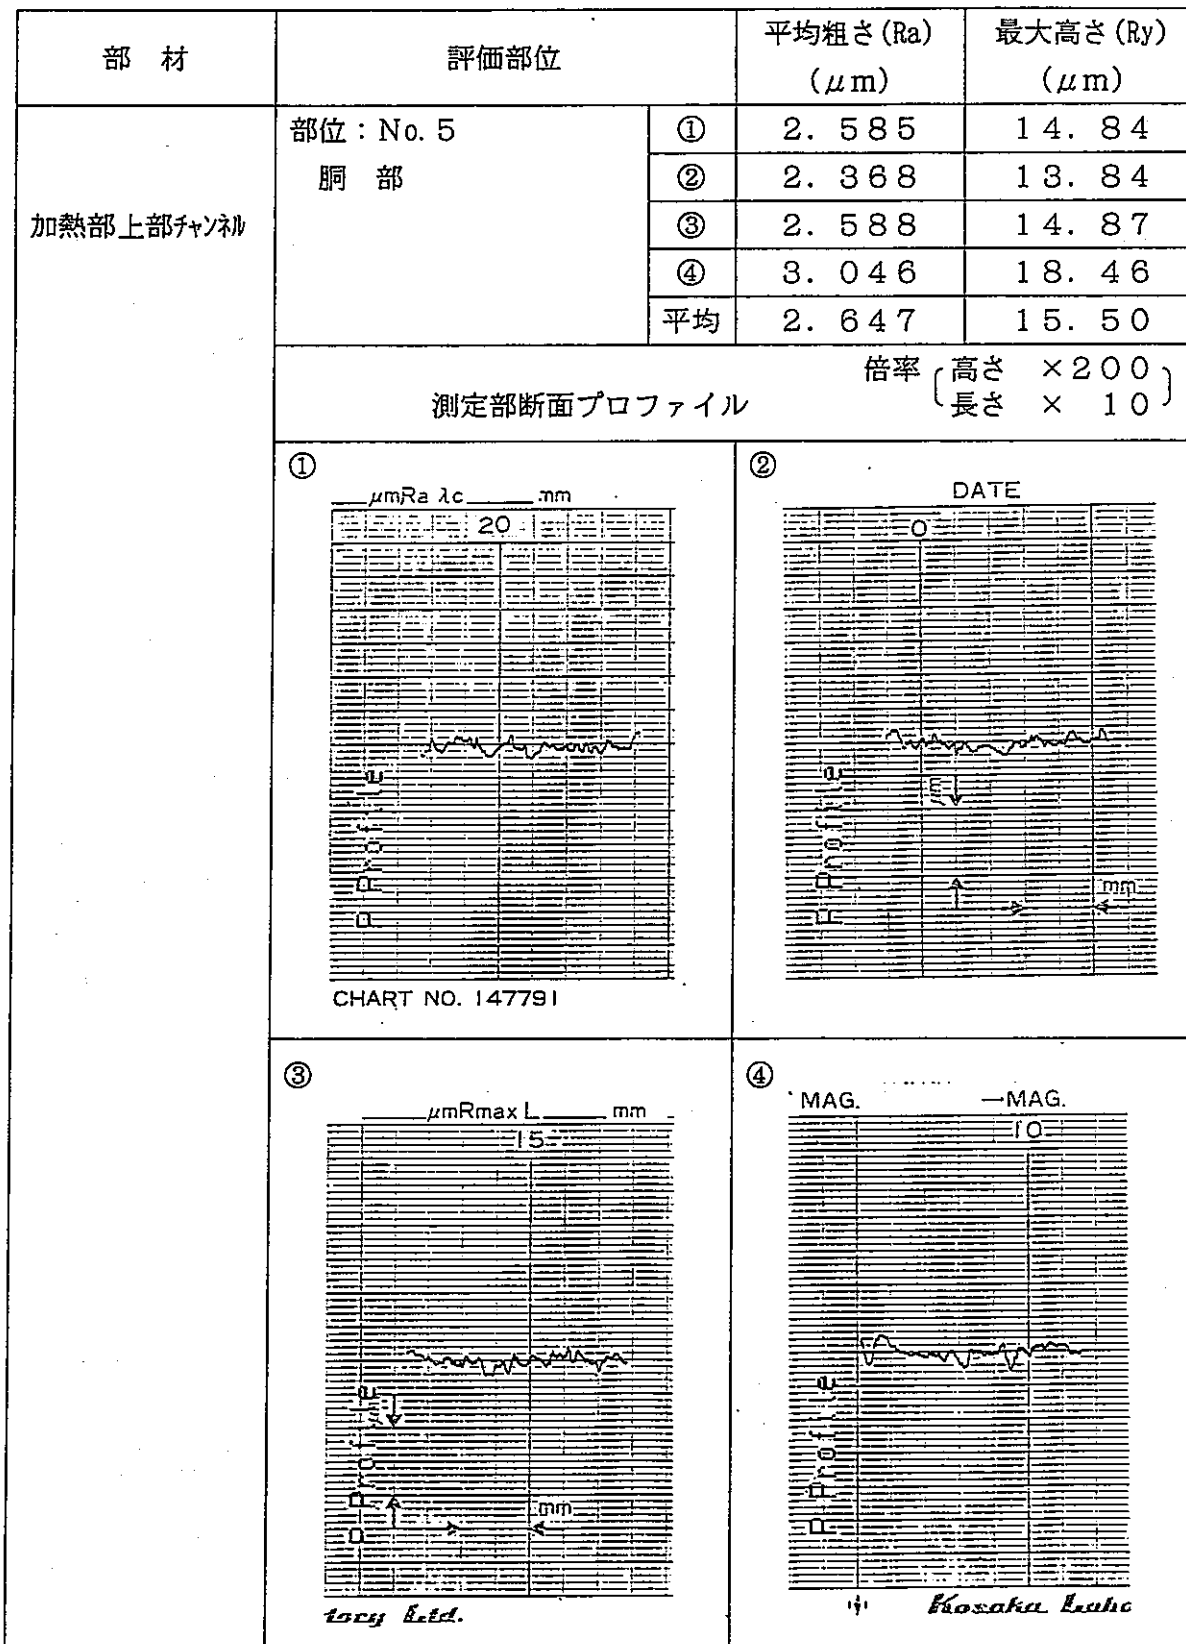 部 材 評価部位 平均粗さ(Ra) 最大高さ(Ry)
(μm) (μm)
部位：No. 5 ① 2. 585 14. 84
胴 部 ② 2. 368 13. 84
加熱部上部チャンネル ③ 2. 588 14. 87
④ 3. 046 18. 46
平均 2. 647 15. 50
測定部断面プロファイル 倍率 高さ ×200
長さ × 10
①
μmRa λc mm
20
P Profile
CHART NO. 147791
②
DATE
0
μm
P Profile
mm
③
μmRmax L mm
15
μm
P Profile
mm
tory Ltd.
④
MAG. →MAG.
10
P Profile
Kosaka Labo